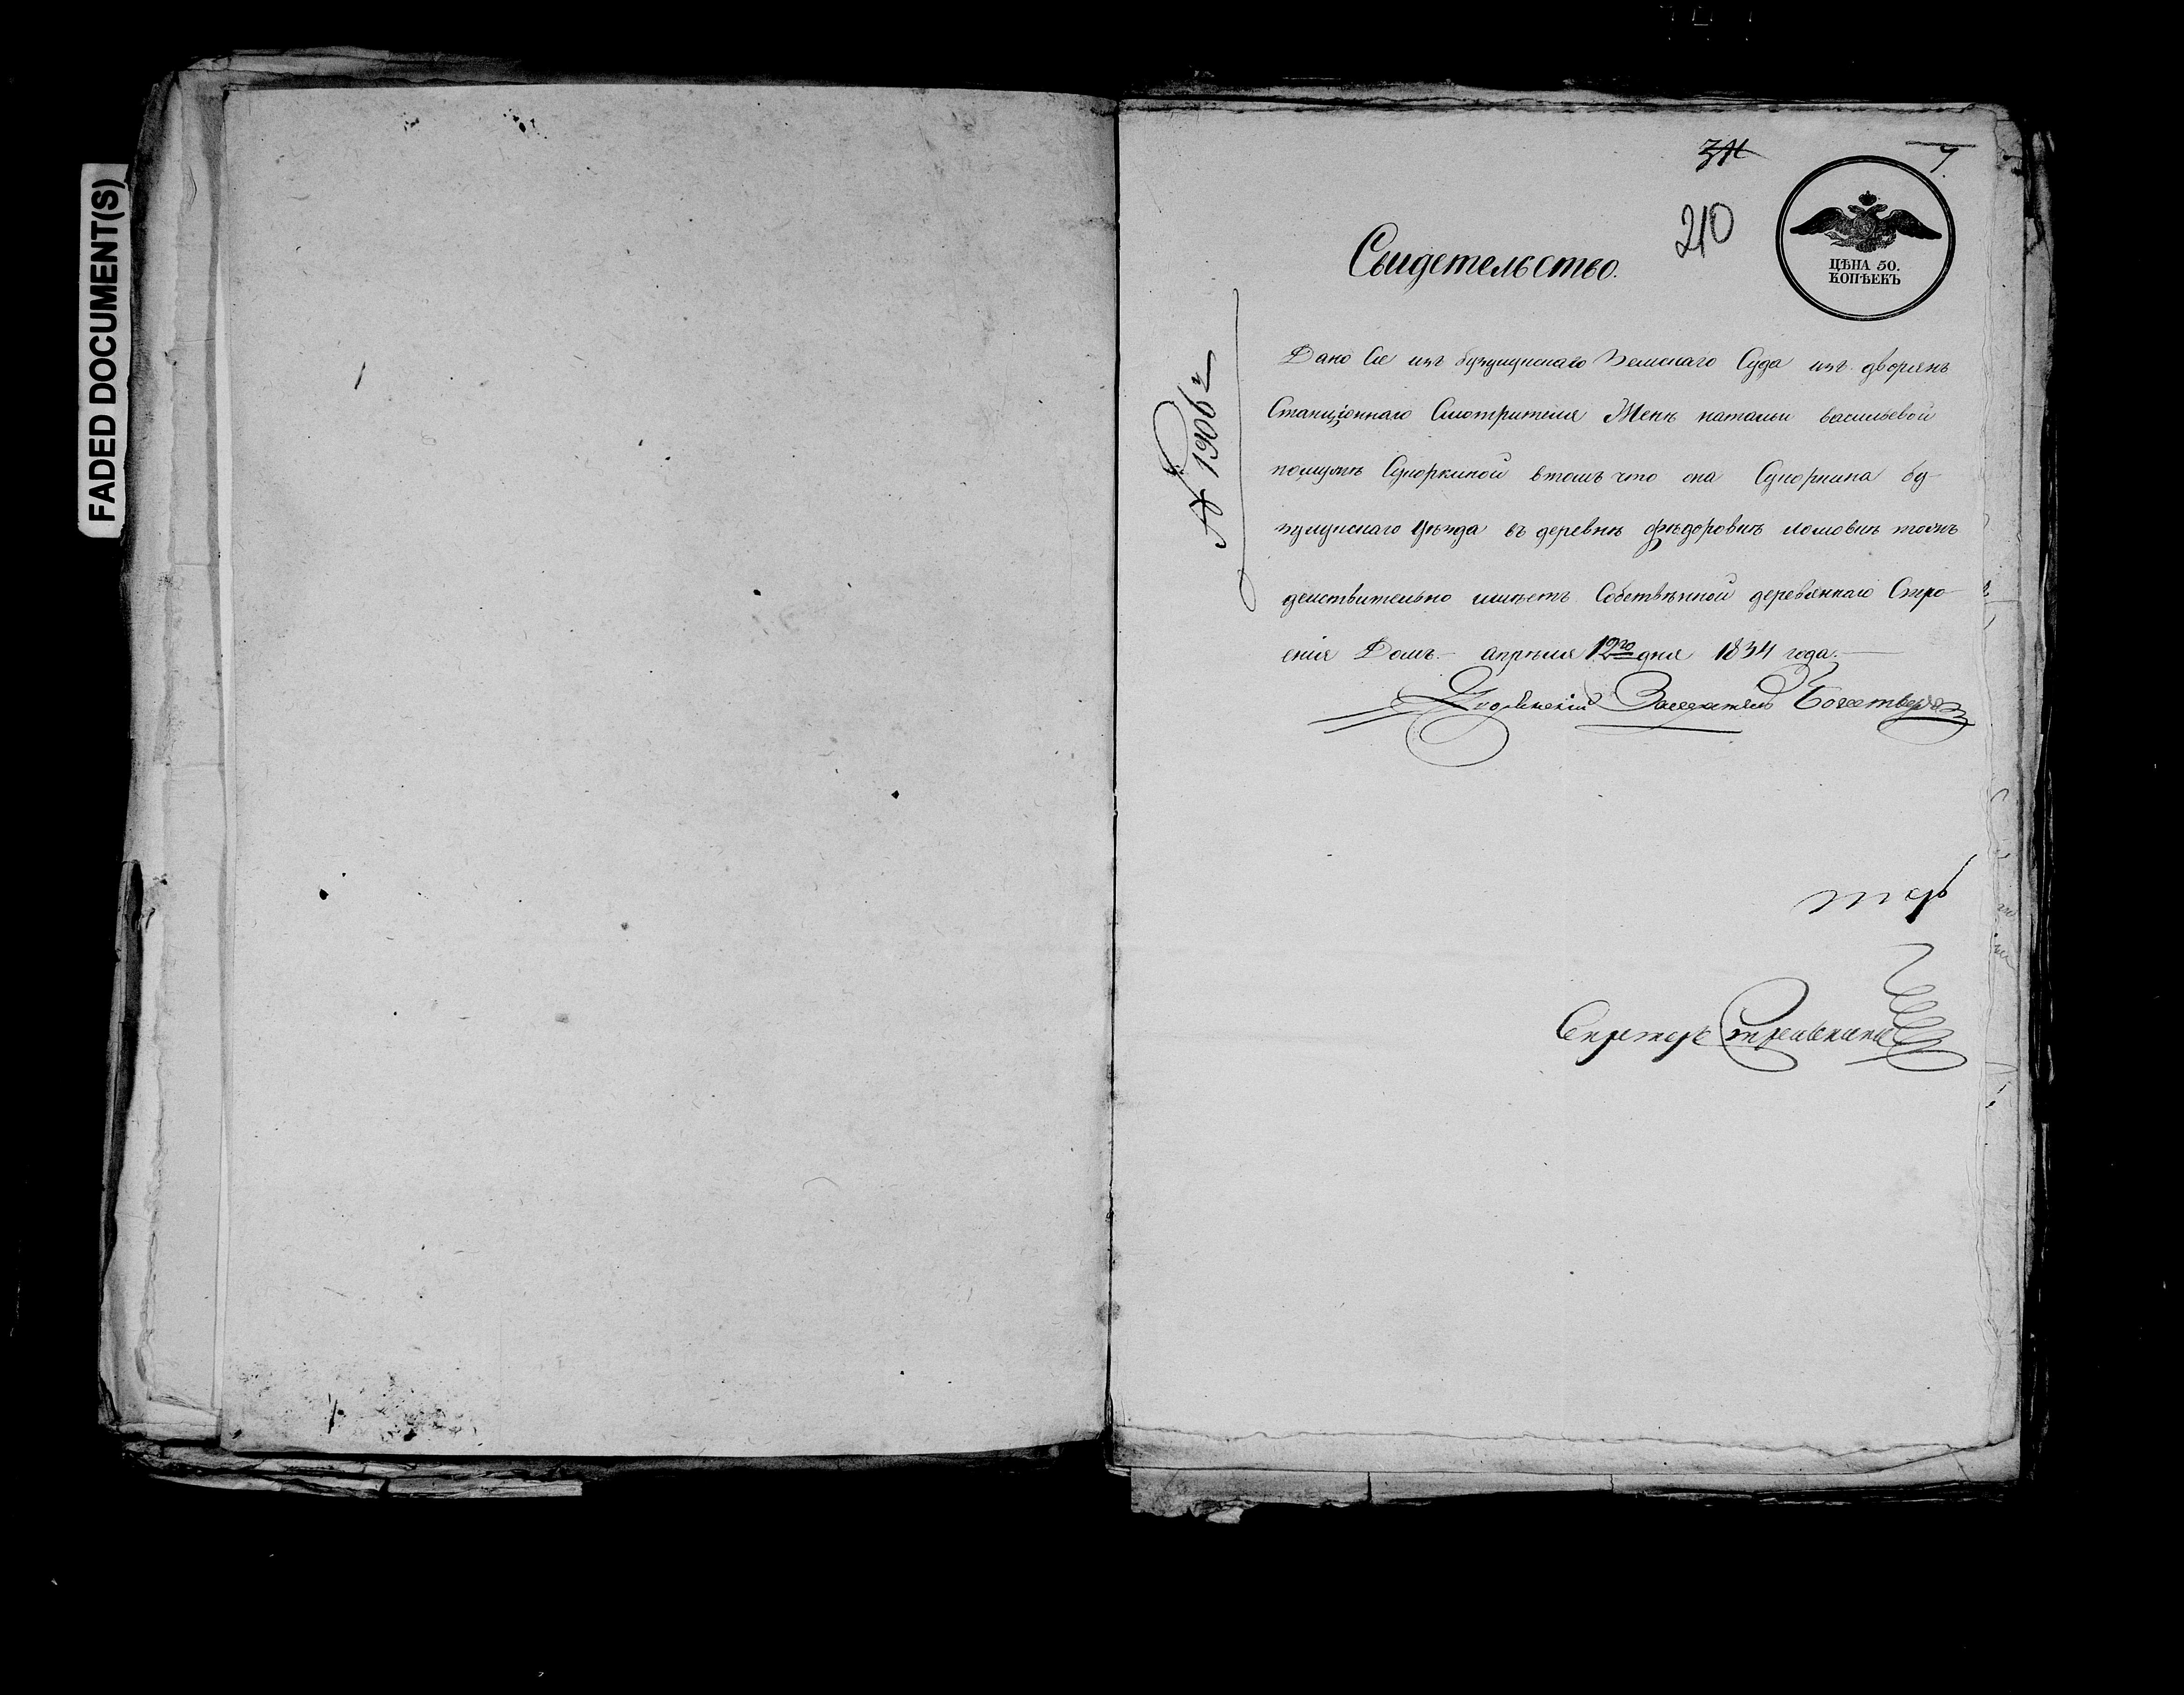 FADED DOCUMENT(S)
7
210
ЦѢНА 50.
КОПѢЕКЪ
Свидетельство.
№ 1906
Дано Сіе изъ бузулукскаго Земскаго Суда изъ дворянъ
Станціоннаго Смотрителя Женѣ натальи васильевой
помужѣ Сукоркиной втомъ что она Сукоркина бу-
зулукскаго уѣзда въ деревнѣ фѣдоровкѣ ломовкѣ тожъ
действительно имѣетъ Собствѣнной деревяннаго Стро-
енія Домъ. апрѣля 12го дня 1834 года.
Дворянский Заседатель
Секретарь Стрелькинъ